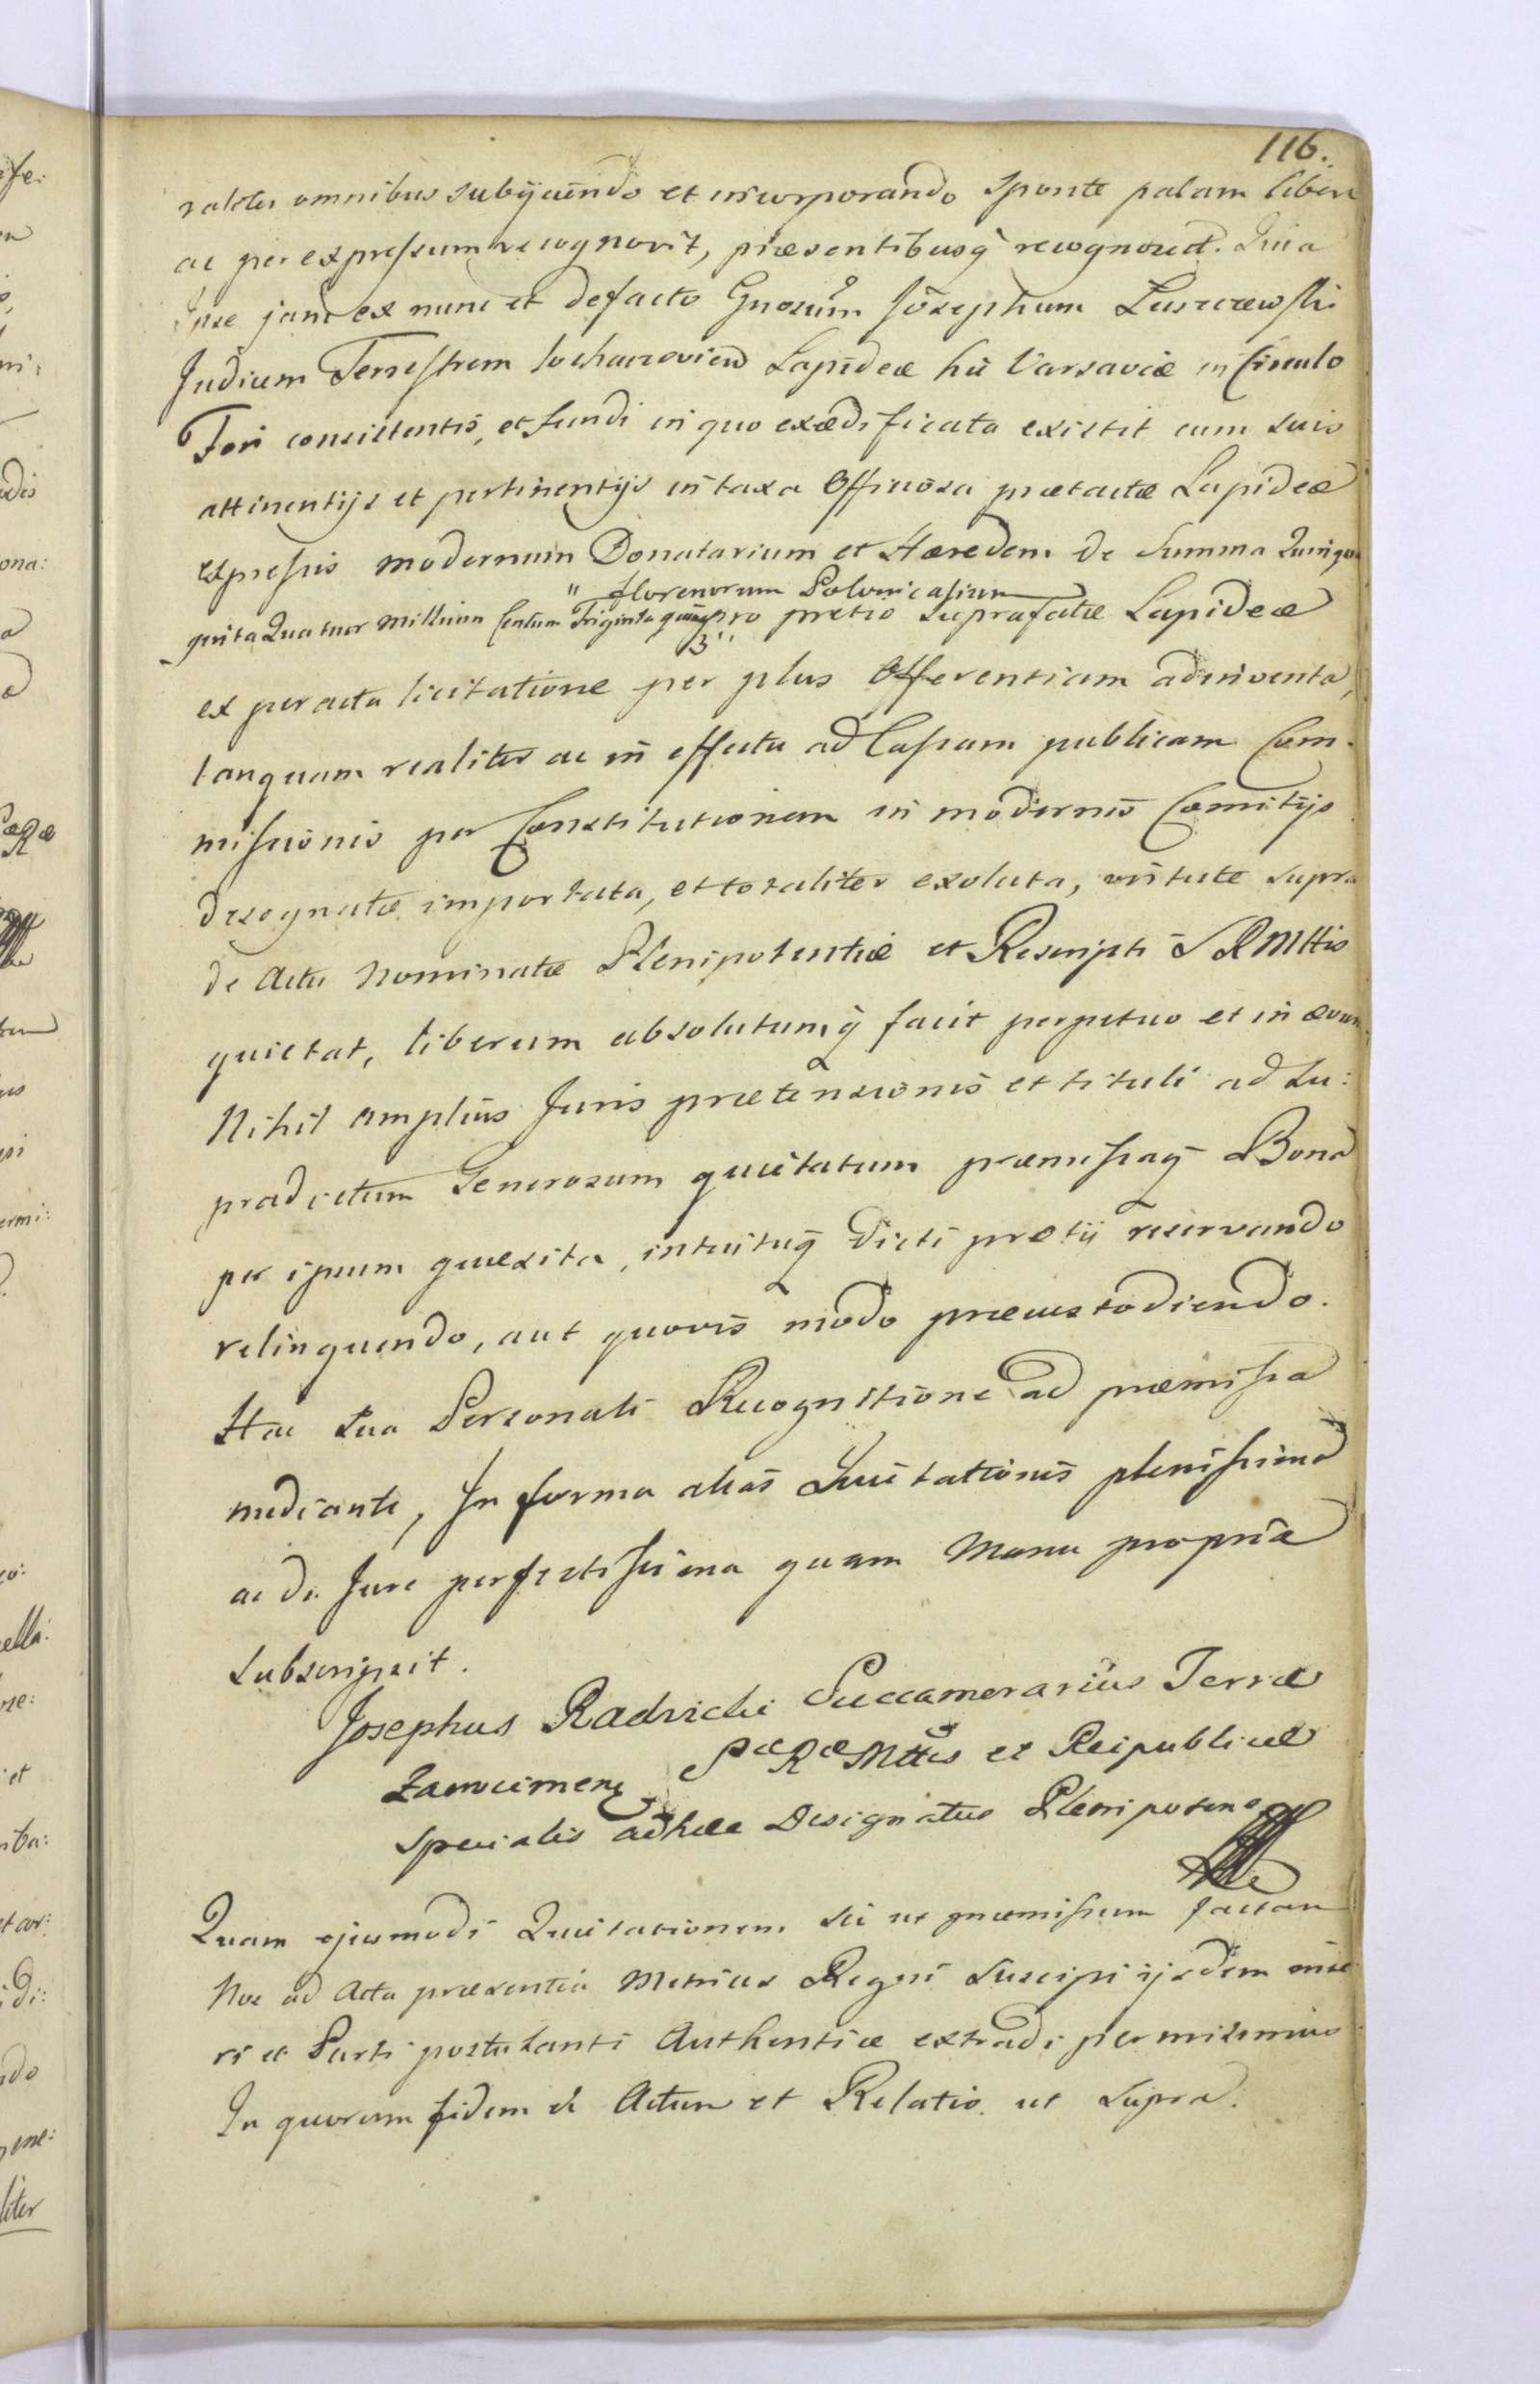 116.
raliter omnibus subijciendo et incorporando sponte palam libere
ac per expressum recognovit, præsentibusq recognoscit. Quia
Ipse jam ex nunc et defacto Gnosum Josephum Luszczewski
Judicem Terrestrem Sochaczovien Lapideæ hic Varsaviæ in Circulo
Fori consistentis, et fundi in quo exædificata existit cum suis
attinentijs et pertinentijs in taxa Officiosa prætactæ Lapideæ
expressis modernum Donatarium et Hæredem de Summa Quinqua
ginta Quatuor Millium Centum Triginta quinq florenorum Polonicalium pro pretio suprafatæ Lapideæ
ex peracta licitatione per plus Offerentiam adinventa,
tanquam realiter ac in effectu ad Cassam publicam Com-
missionis per Constitutionem in modernis Comitijs
designatæ importata, et totaliter exoluta, virtute supra
de Actu Nominatæ Plenipotentiæ et Rescripti S R Mttis
quietat, liberum absolutumq facit perpetuo et in ævum
Nihil amplius Juris prætensionis et tituli ad Su:
pradictum Generosum quietatum præmissaq Bona
per ipsum quæsita, intuituq dicti pretij reservando
relinquendo, aut quovis modo præcustodiendo.
Hac Sua Personali Recognitione ad præmissa
mediante, In forma alias Quietationis plenissima
ac de Jure perfectissima quam Manu propria
subscripsit.
Josephus Radzicki Succamerarius Terræ
Zakroczimen Sæ Ræ Mttis et Reipublicæ
specialis adhæc Designatus Plenipotens
Quam ejusmodi Quietationem sic ut præmissum factam
Nos ad Acta præsentia Metrices Regni suscipi ijsdem inse
ri et Parti postulanti Authentice extradi permisimus
In quorum fidem &c Actum et Relatio ut supra.